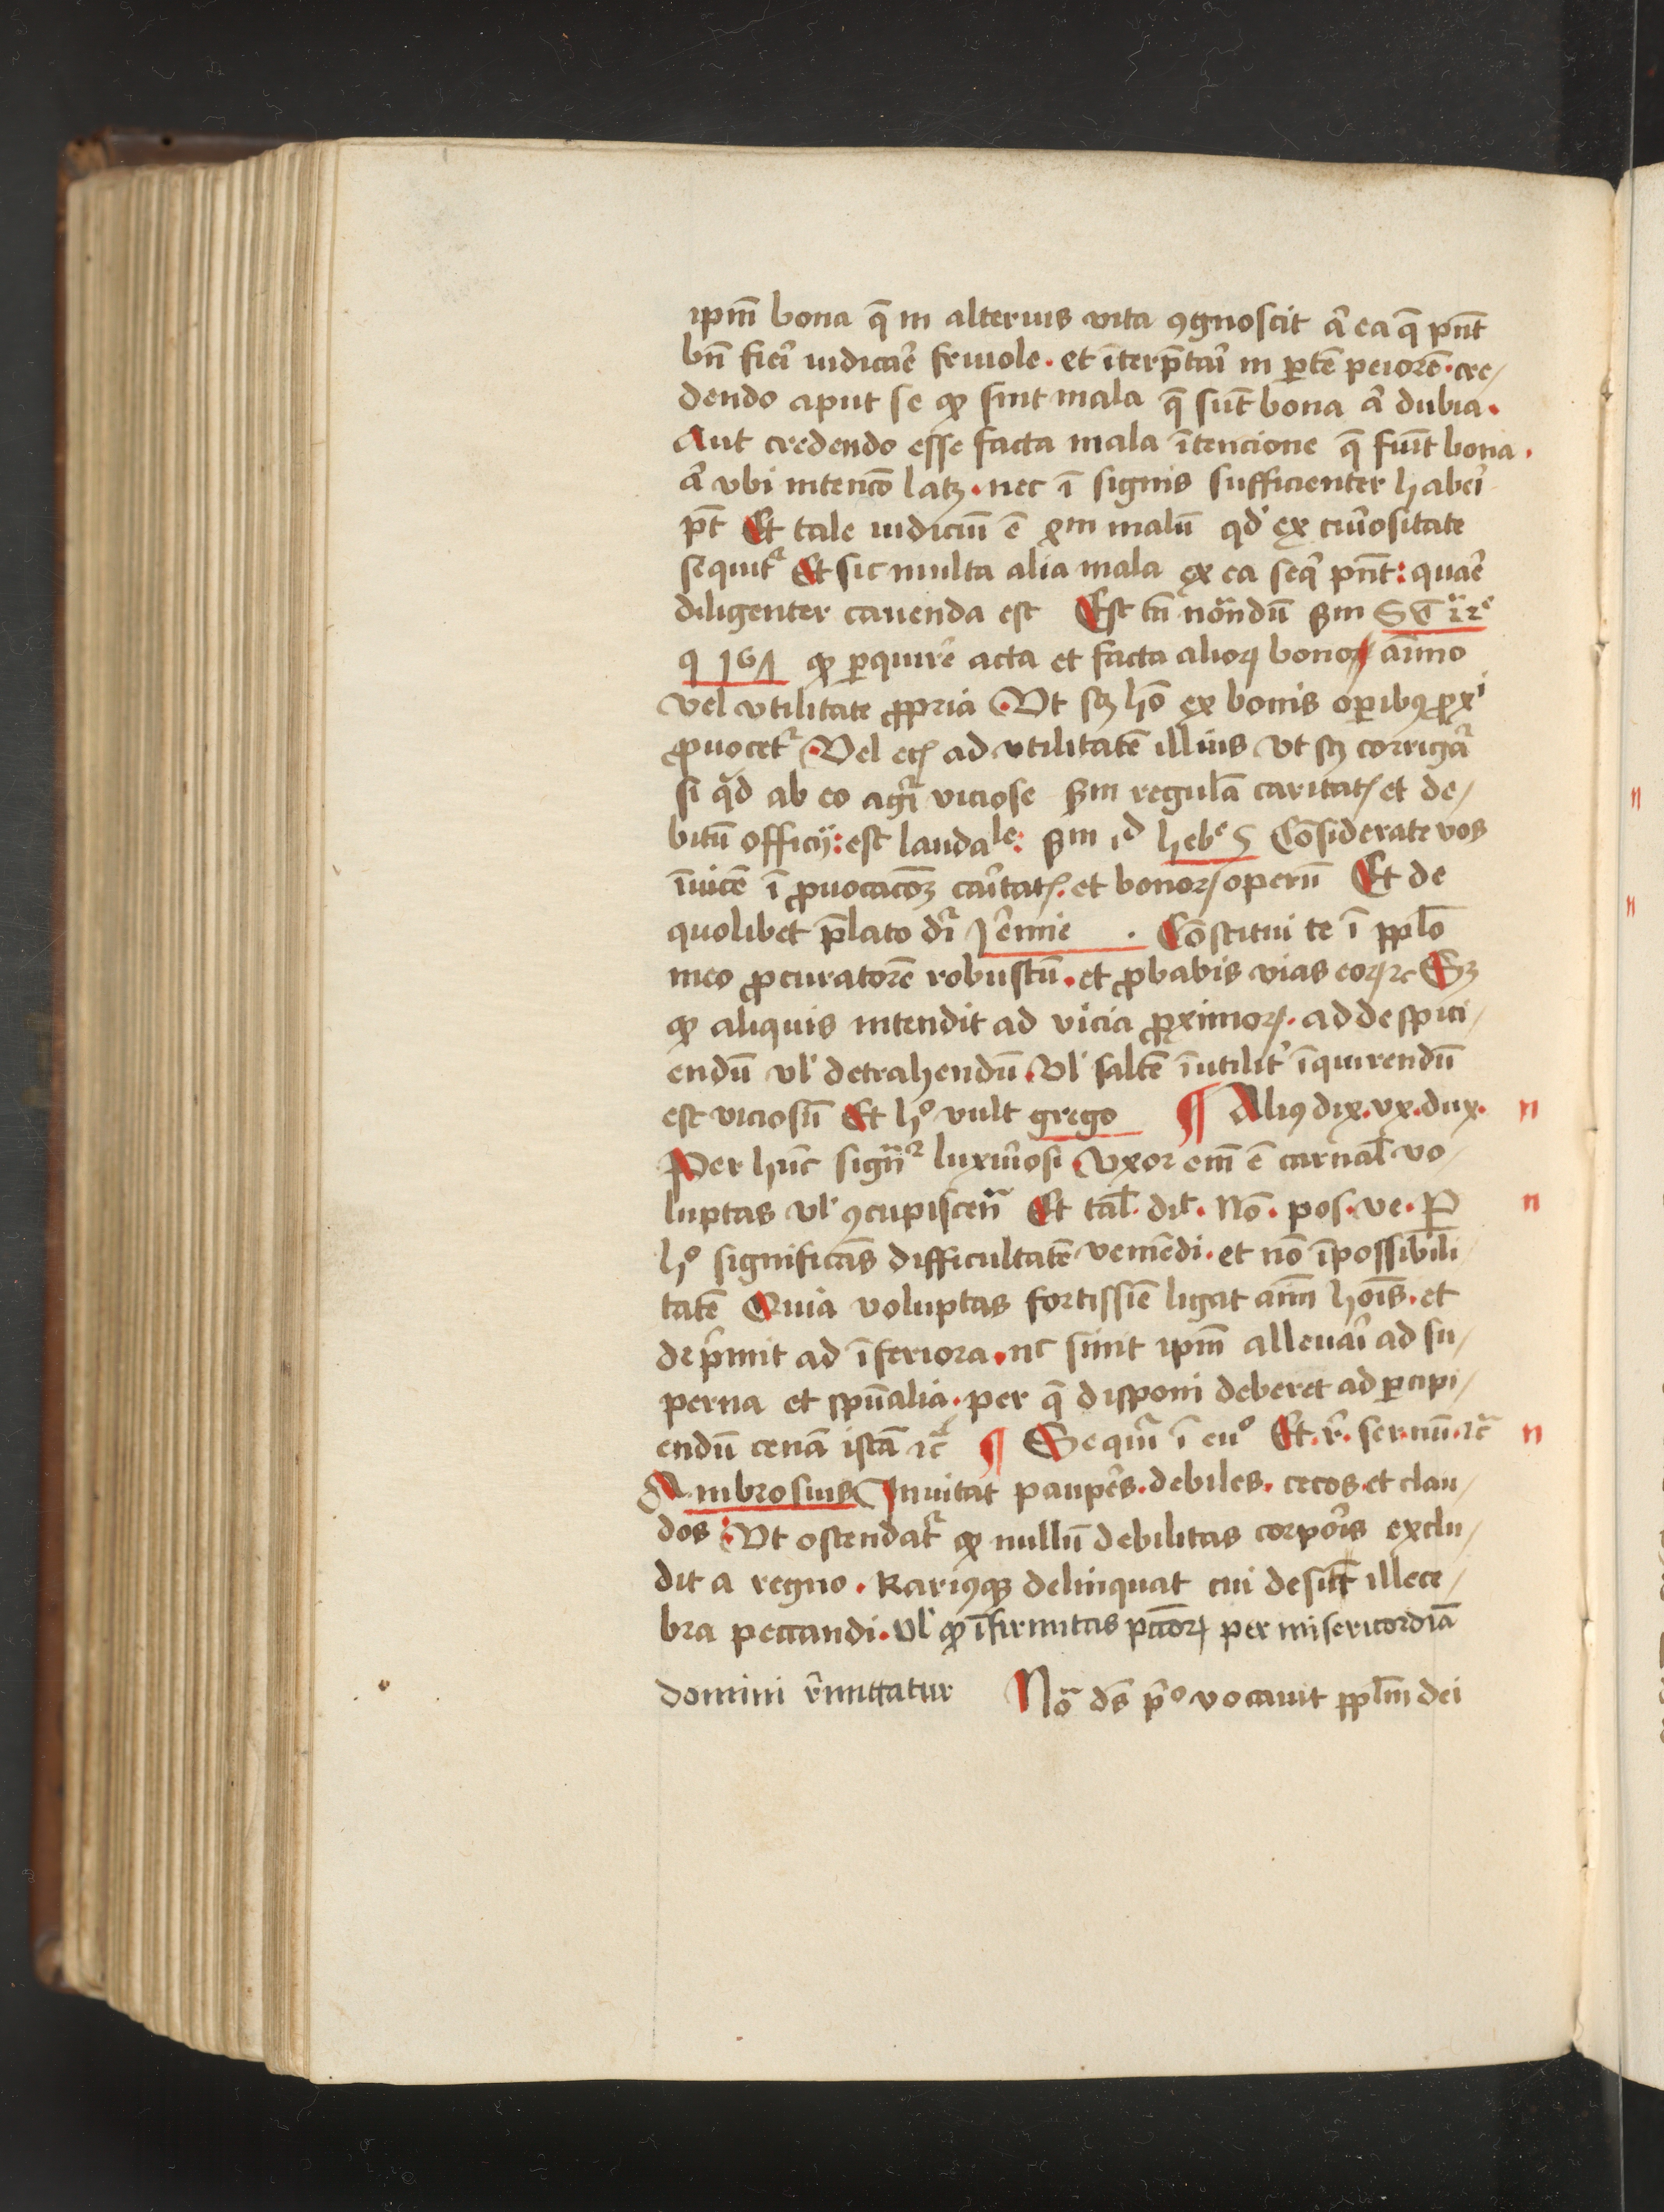 ipm̄ bona q̄ in alterius vita ꝯgnoscit aͬ ea q̄ pn̄t
bn̄ fieͥ iudicaͤ friuole · et īterp̄taͥ in ꝑtē peiorē · cre/
dendo aput se ꝙ sint mala q̄ sūt bona aͬ dubia ·
Aut credendo esse facta mala ītencione q̄ fuīt bona ·
aͬ vbi intencō latꝫ · nec ī signis sufficienter habeͥ
pt̄ Et tale iudiciū ē gͣm malū qd' ex cuͥositate
sequit᷑ Et sic multa alia mala ex ea seqͥ pn̄t : quaͤ
diligenter cauenda est Est tn̄ nōandū ẜm S T ii ͣ ii ͤ
q 167 ꝙ ꝑquireͤ acta et facta alioꝝ bono aīmo
vel vtilitate ꝓpria · Vt sꝫ hō ex bonis oꝑibꝰ ꝓxⁱ
ꝓuocet᷑ · Vel etꝭ ad vtilitatē illius vt sꝫ corrigaͬ
si qͥd ab eo agiͬ viciose ẜm regulā caritatꝭ et de/
bitū officij : est laudaˡᵉ : ẜm iᵈ hebᵉ 5 Cōsiderate vos
īuicē ī ꝓuocacōꝫ caͥtatꝭ · et bonoꝝ operū Et de
quolibet p̄lato dͬ Jeͤmie · Cōstitui te ī pplō
meo ꝓcuratorē robustū · et ꝓbabis vias eoꝝ ⁊c Sꝫ
ꝙ aliquis intendit ad vicia ꝓximoꝝ · ad despici/
endū vl' detrahendū · Vl' saltē īutilit' īquirendū
est viciosū Et hᵒ vult grego ¶ Aliꝰ dix · vx · dux · n
Per hūc sign̄ͬ luxuͥosi · Vxor em̄ ē carnal̄ vo/
luptas vl' ꝯcupiscenͣ Et tal̄ · dīt · Nō · pos · ve · P n
hᵒ significās difficultatē veniēdi · et nō īpossibili/
tatē Quia voluptas fortissīe ligat aīm hoīs · et
dep̄mit ad īferiora · nᶜ sinit ipm̄ alleuaͥ ad su/
perna et spūalia · per q̄ disponi deberet ad ꝑcipi/
endū cenā istā ⁊cͣ ¶ Sequiͬ ī euᵒ Et · r̄ · ser · nū · ⁊cͣ n
Ambrosius Inuitat pauꝑes · debiles · cecos · et clau/
dos : Vt ostendat᷑ ꝙ nullū debilitas corpoͥs exclu/
dit a regno · Rariꝰqꝫ delinquat cui desūt illece/
bra peccandi · Vl' ꝙ īfirmitas pc̄coꝝ per misericordiā
domini rͤmittatur Nōͣ dn̄s pͥᵒ vocauit pplm̄ dei